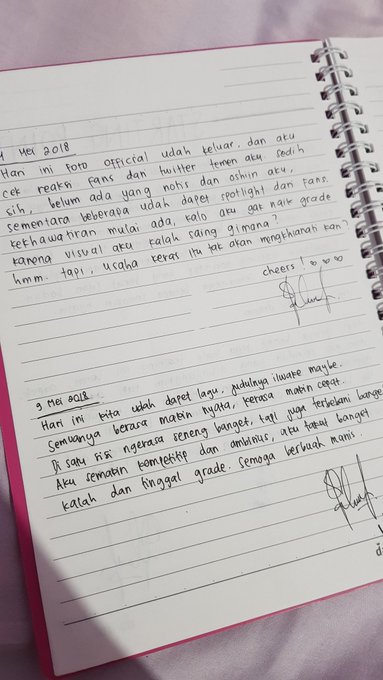 Mei 2018
Hari ini foto official udah keluar, dan aku
cek reaksi fans dan twitter temen aku sedih
sih, belum ada yang notis dan oshiin aku,
sementara beberapa udah dapet spotlight dari fans.
kekhawatiran mulai ada, kalo aku gak naik grade
karena visual aku kalah saing gimana?
hmm. tapi, usaha keras itu tak akan mengkhianati kan?
cheers!
9 Mei 2018
Hari ini kita udah dapet lagu, judulnya ilwake maybe.
Semuanya berasa makin nyata, kerasa makin cepat.
Di satu sisi ngerasa seneng banget, tapi juga terbebani banget
Aku semakin kompetitip dan ambisius, aku takut banget
kalah dan tinggal grade. Semoga berbuah manis.